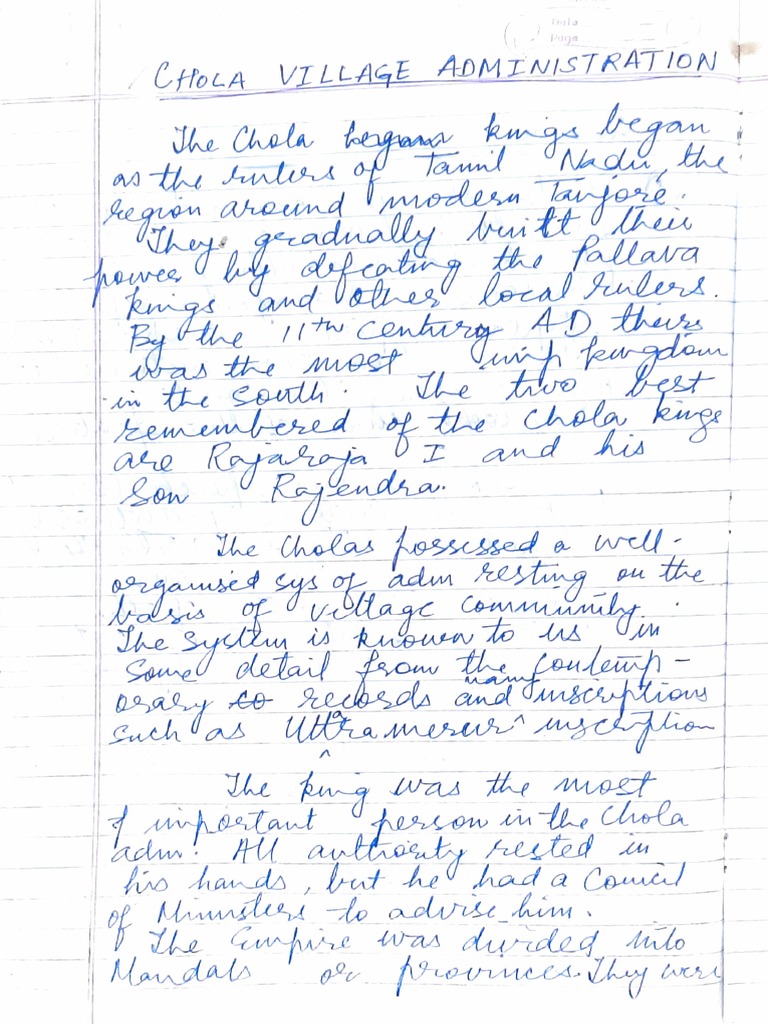 Date
Page
CHOLA VILLAGE ADMINISTRATION
The Chola began kings began
as the rulers of Tamil Nadu, the
region around modern Tanjore.
They gradually built their
power by defeating the Pallava
kings and other local rulers.
By the 11th century AD theirs
was the most imp kingdom
in the south. The two best
remembered of the Chola kings
are Rajaraja I and his
Son Rajendra.
The Cholas possessed a well-
organised sys of adm resting on the
basis of village community.
The system is known to us in
some detail from the contemp-
orary to records and many inscriptions
such as Uttaramerur inscription
The king was the most
important person in the Chola
adm. All authority rested in
his hands, but he had a Council
of Ministers to advise him.
The Empire was divided into
Mandals or provinces. They were